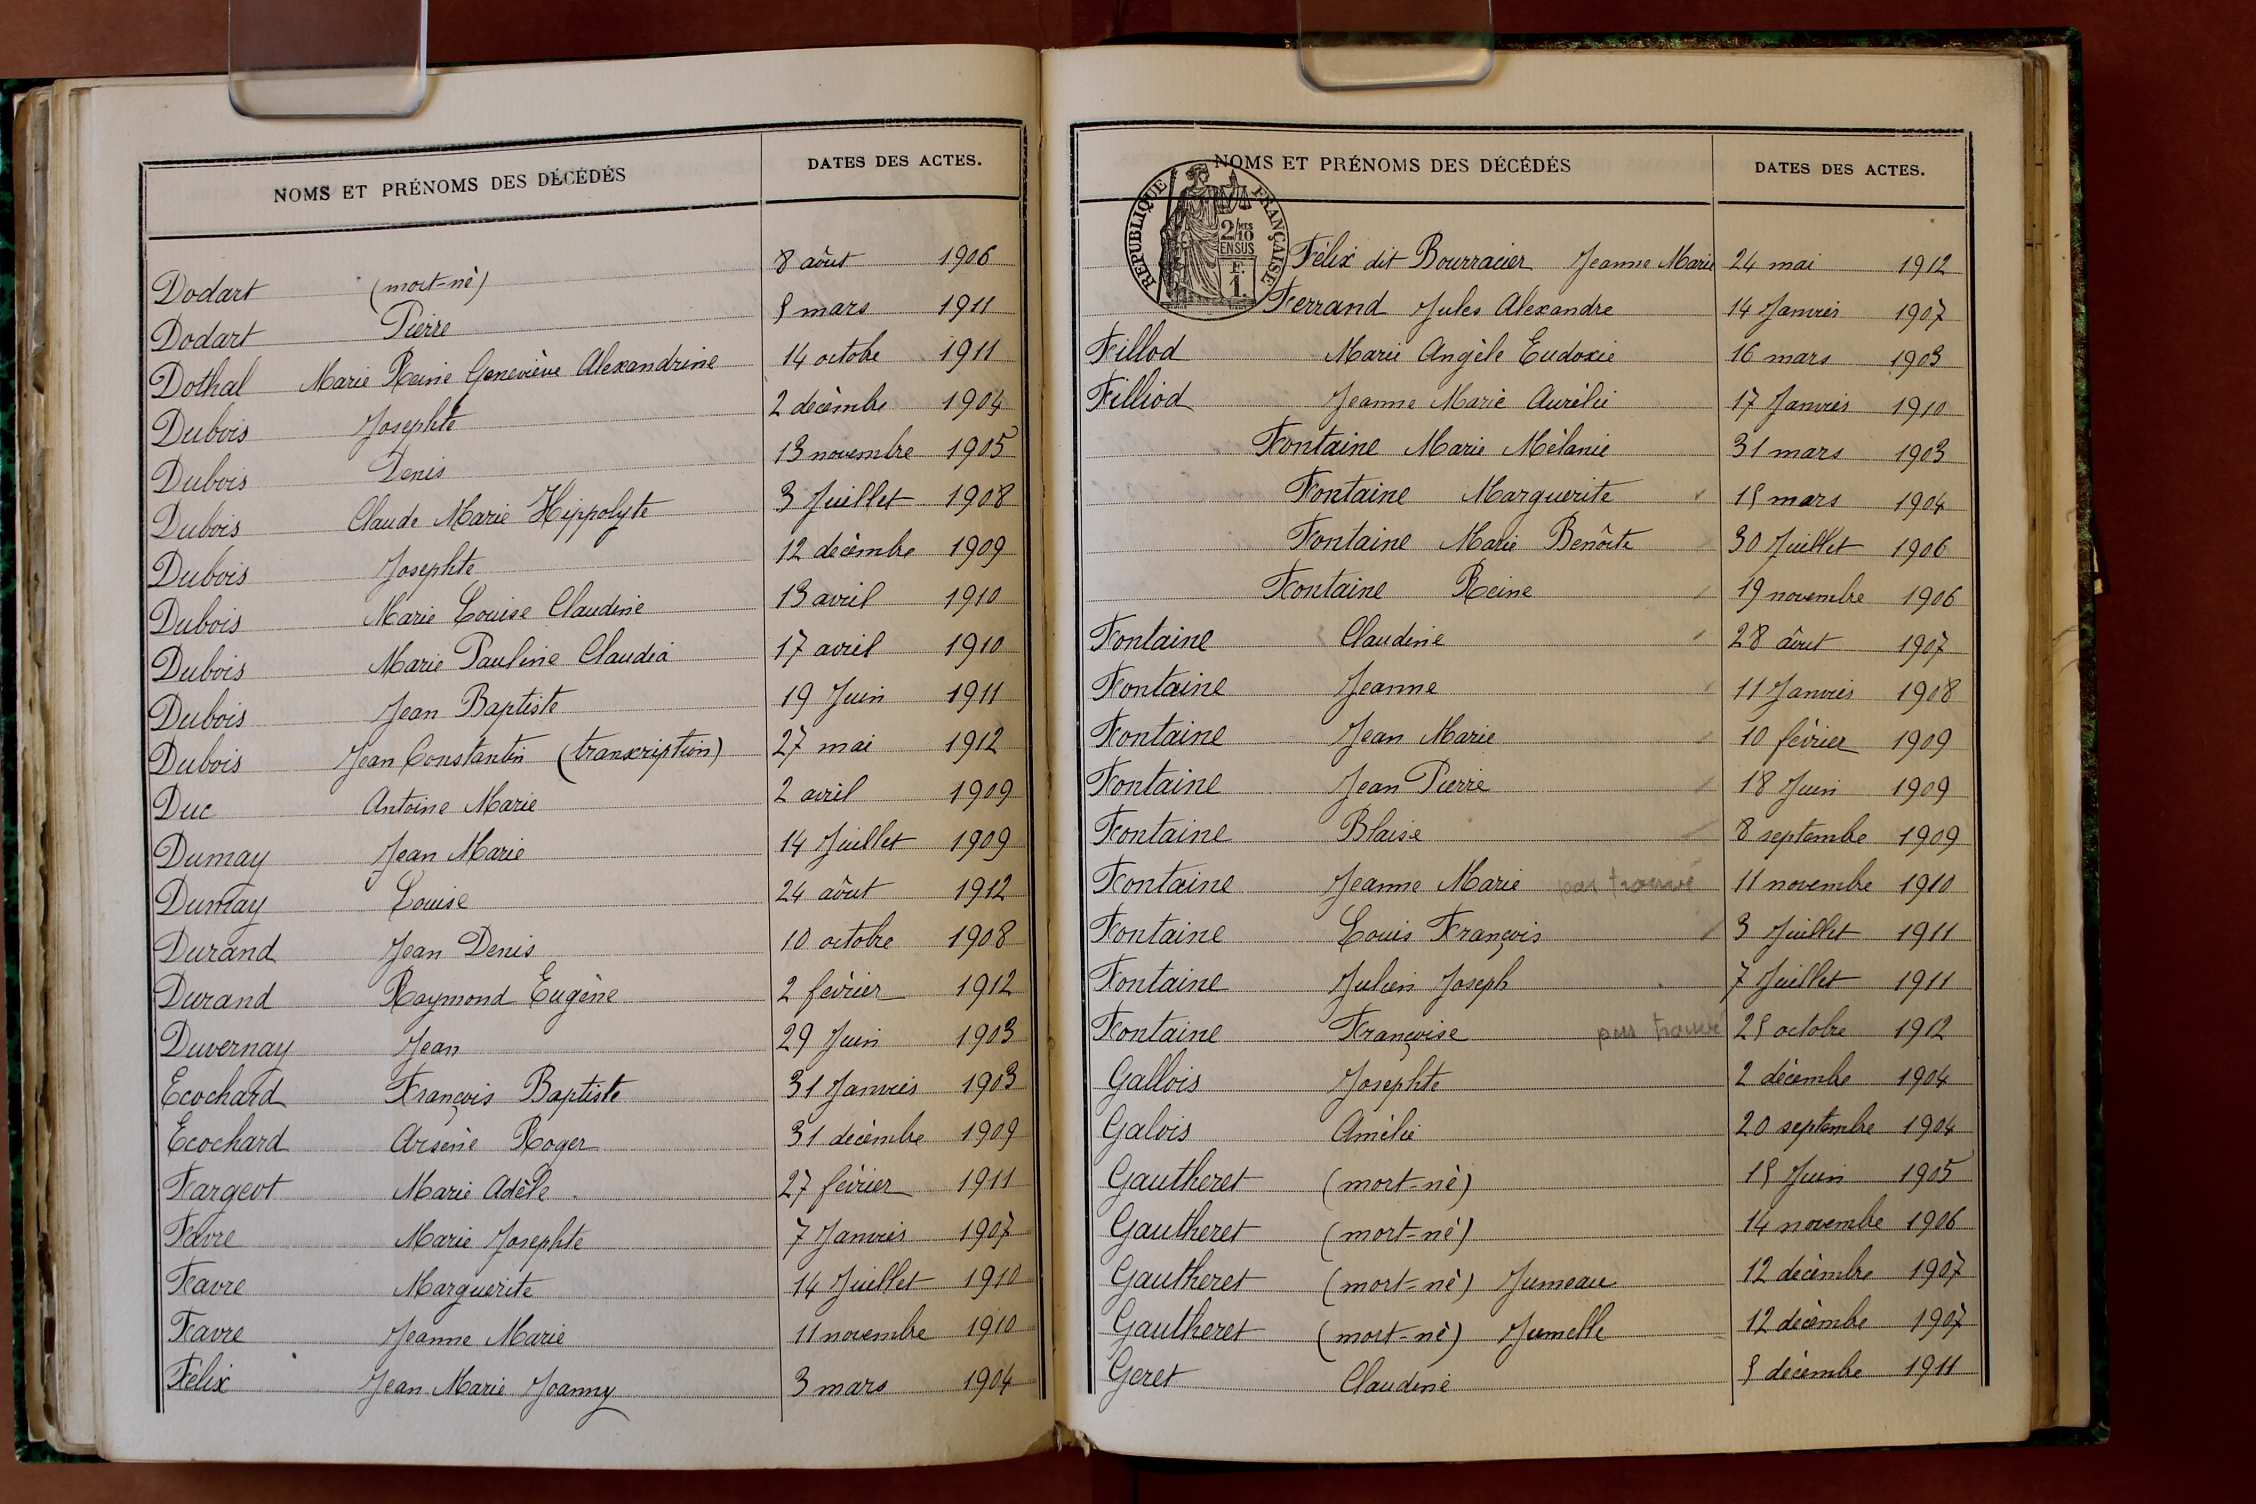 NOMS ET PRÉNOMS DES DÉCÉDÉS DATES DES ACTES.
Dodart (mort-né) 8 août 1906
Dodart Pierre 5 mars 1911
Dothal Marie Reine Geneviève Alexandrine 14 octobre 1911
Dubois Josephte 2 décembre 1904
Dubois Denis 13 novembre 1905
Dubois Claude Marie Hippolyte 3 Juillet 1908
Dubois Josephte 12 décembre 1909
Dubois Marie Louise Claudine 13 avril 1910
Dubois Marie Pauline Claudia 17 avril 1910
Dubois Jean Baptiste 19 Juin 1911
Dubois Jean Constantin (transcription) 27 mai 1912
Duc Antoine Marie 2 avril 1909
Dumay Jean Marie 14 Juillet 1909
Dumay Louise 24 août 1912
Durand Jean Denis 10 octobre 1908
Durand Raymond Eugène 2 février 1912
Duvernay Jean 29 Juin 1903
Ecochard François Baptiste 31 Janvier 1903
Ecochard Arsène Roger 31 décembre 1909
Fargeot Marie Adèle 27 février 1911
Favre Marie Josephte 7 Janvier 1907
Favre Marguerite 14 Juillet 1910
Favre Jeanne Marie 11 novembre 1910
Félix Jean Marie Joanny 3 mars 1904
NOMS ET PRÉNOMS DES DÉCÉDÉS DATES DES ACTES.
RÉPUBLIQUE FRANÇAISE
2/10MES
EN SUS
F.
1.
Félix dit Bourracier Jeanne Marie 24 mai 1912
Ferrand Jules Alexandre 14 Janvier 1907
Fillod Marie Angèle Eudoxie 16 mars 1903
Filliod Jeanne Marie Aurélie 17 Janvier 1910
Fontaine Marie Mélanie 31 mars 1903
Fontaine Marguerite 15 mars 1904
Fontaine Marie Benoîte 30 Juillet 1906
Fontaine Reine 19 novembre 1906
Fontaine Claudine 28 août 1907
Fontaine Jeanne 11 Janvier 1908
Fontaine Jean Marie 10 février 1909
Fontaine Jean Pierre 18 Juin 1909
Fontaine Blaise 8 septembre 1909
Fontaine Jeanne Marie pas trouvé 11 novembre 1910
Fontaine Louis François 3 Juillet 1911
Fontaine Julien Joseph 7 Juillet 1911
Fontaine Françoise pas trouvé 25 octobre 1912
Gallois Josephte 2 décembre 1904
Galois Amélie 20 septembre 1904
Gautheret (mort-né) 15 Juin 1905
Gautheret (mort-né) 14 novembre 1906
Gautheret (mort-né) Jumeau 12 décembre 1907
Gautheret (mort-né) Jumelle 12 décembre 1907
Geret Claudine 5 décembre 1911